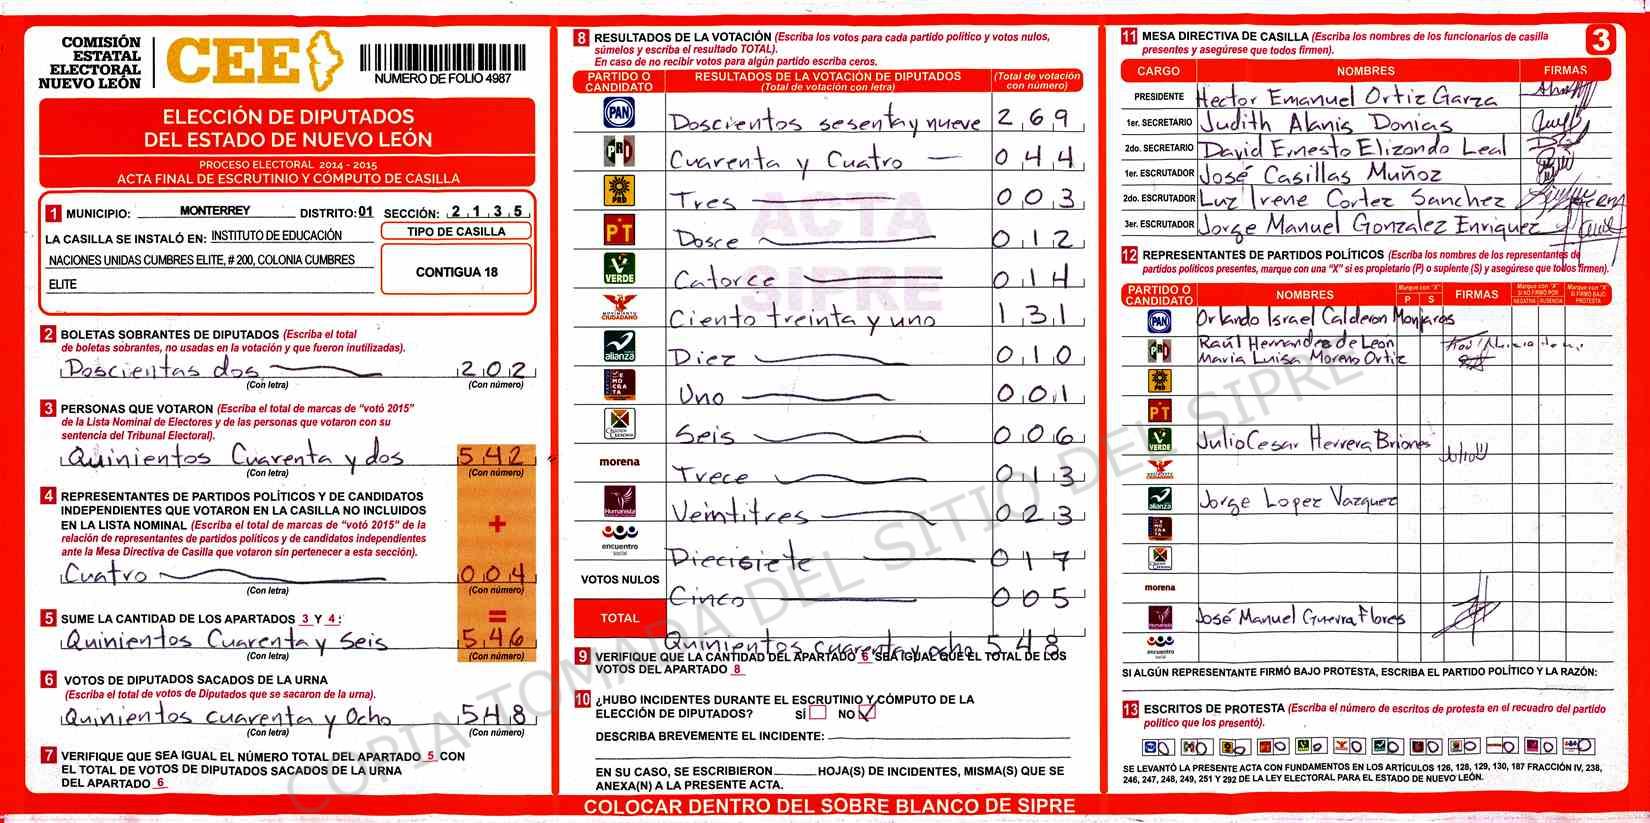 COMISIÓN
ESTATAL
ELECTORAL
NUEVO LEÓN
CEE
NUMERO DE FOLIO 4987
ELECCIÓN DE DIPUTADOS
DEL ESTADO DE NUEVO LEÓN
PROCESO ELECTORAL 2014 - 2015
ACTA FINAL DE ESCRUTINIO Y CÓMPUTO DE CASILLA
1 MUNICIPIO: MONTERREY DISTRITO: 01 SECCIÓN: 2135
LA CASILLA SE INSTALÓ EN: INSTITUTO DE EDUCACIÓN
NACIONES UNIDAS CUMBRES ELITE, # 200, COLONIA CUMBRES
ELITE
TIPO DE CASILLA
CONTIGUA 18
2 BOLETAS SOBRANTES DE DIPUTADOS (Escriba el total
de boletas sobrantes, no usadas en la votación y que fueron inutilizadas).
Doscientas dos 202
(Con letra) (Con número)
3 PERSONAS QUE VOTARON (Escriba el total de marcas de “votó 2015”
de la Lista Nominal de Electores y de las personas que votaron con su
sentencia del Tribunal Electoral).
Quinientos Cuarenta y dos 542
(Con letra) (Con número)
4 REPRESENTANTES DE PARTIDOS POLÍTICOS Y DE CANDIDATOS
INDEPENDIENTES QUE VOTARON EN LA CASILLA NO INCLUIDOS
EN LA LISTA NOMINAL (Escriba el total de marcas de “votó 2015” de la
relación de representantes de partidos políticos y de candidatos independientes
ante la Mesa Directiva de Casilla que votaron sin pertenecer a esta sección).
+
Cuatro 004
(Con letra) (Con número)
=
5 SUME LA CANTIDAD DE LOS APARTADOS 3 Y 4:
Quinientos Cuarenta y Seis 546
(Con letra) (Con número)
6 VOTOS DE DIPUTADOS SACADOS DE LA URNA
(Escriba el total de votos de Diputados que se sacaron de la urna).
Quinientos cuarenta y Ocho 548
(Con letra) (Con número)
7 VERIFIQUE QUE SEA IGUAL EL NÚMERO TOTAL DEL APARTADO 5 CON
EL TOTAL DE VOTOS DE DIPUTADOS SACADOS DE LA URNA
DEL APARTADO 6
8 RESULTADOS DE LA VOTACIÓN (Escriba los votos para cada partido político y votos nulos,
súmelos y escriba el resultado TOTAL).
En caso de no recibir votos para algún partido escriba ceros.
PARTIDO O CANDIDATO RESULTADOS DE LA VOTACIÓN DE DIPUTADOS (Total de votación con letra) (Total de votación con número)
PAN Doscientos sesenta y nueve 269
PRD Cuarenta y Cuatro 044
PRD Tres 003
PT Dosce 012
VERDE Catorce 014
MOVIMIENTO CIUDADANO Ciento treinta y uno 131
alianza Diez 010
DEMOCRATA Uno 001
CRUZADA CIUDADANA Seis 006
morena Trece 013
Humanista Veintitres 023
encuentro social Diecisiete 017
VOTOS NULOS Cinco 005
TOTAL Quinientos cuarenta y ocho 548
ACTA
SIPRE
9 VERIFIQUE QUE LA CANTIDAD DEL APARTADO 6 SEA IGUAL QUE EL TOTAL DE LOS
VOTOS DEL APARTADO 8
10 ¿HUBO INCIDENTES DURANTE EL ESCRUTINIO Y CÓMPUTO DE LA
ELECCIÓN DE DIPUTADOS? SÍ NO
DESCRIBA BREVEMENTE EL INCIDENTE:
EN SU CASO, SE ESCRIBIERON HOJA(S) DE INCIDENTES, MISMA(S) QUE SE
ANEXA(N) A LA PRESENTE ACTA.
11 MESA DIRECTIVA DE CASILLA (Escriba los nombres de los funcionarios de casilla
presentes y asegúrese que todos firmen).
3
CARGO NOMBRES FIRMAS
PRESIDENTE Hector Emanuel Ortiz Garza
1er. SECRETARIO Judith Alanis Donias
2do. SECRETARIO David Ernesto Elizondo Leal
1er. ESCRUTADOR José Casillas Muñoz
2do. ESCRUTADOR Luz Irene Cortez Sanchez
3er. ESCRUTADOR Jorge Manuel Gonzalez Enriquez
12 REPRESENTANTES DE PARTIDOS POLÍTICOS (Escriba los nombres de los representantes de
partidos políticos presentes, marque con una “X” si es propietario (P) o suplente (S) y asegúrese que todos firmen).
PARTIDO O CANDIDATO NOMBRES Marque con “X” P S FIRMAS Marque con “X” SI NO FIRMÓ POR: NEGATIVA AUSENCIA Marque con “X” SI FIRMÓ BAJO PROTESTA
PAN Orlando Israel Calderon Monjaros
PRD Raúl Hernandes de Leon
Maria Luisa Moreno Ortiz
PRD
PT
VERDE Julio Cesar Herrera Briones
alianza Jorge Lopez Vazquez
morena
Humanista José Manuel Guerra Flores
encuentro social
SI ALGÚN REPRESENTANTE FIRMÓ BAJO PROTESTA, ESCRIBA EL PARTIDO POLÍTICO Y LA RAZÓN:
13 ESCRITOS DE PROTESTA (Escriba el número de escritos de protesta en el recuadro del partido
político que los presentó).
0 0 0 0 0 0 0 0 0 0 0 0
SE LEVANTÓ LA PRESENTE ACTA CON FUNDAMENTOS EN LOS ARTÍCULOS 126, 128, 129, 130, 187 FRACCIÓN IV, 238,
246, 247, 248, 249, 251 Y 292 DE LA LEY ELECTORAL PARA EL ESTADO DE NUEVO LEÓN.
COLOCAR DENTRO DEL SOBRE BLANCO DE SIPRE
COPIA TOMADA DEL SITIO DEL SIPRE